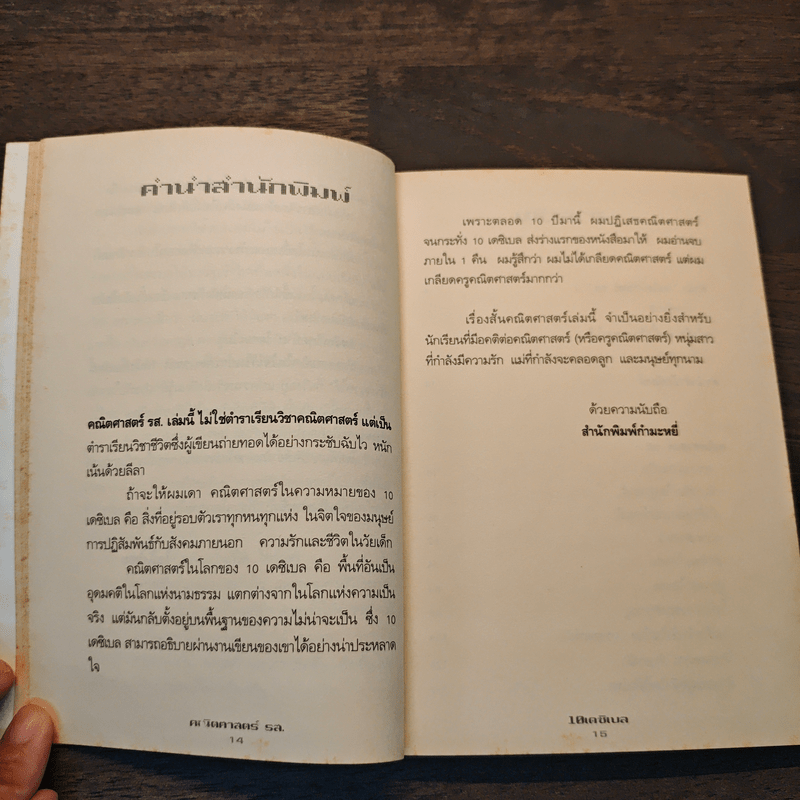 คำนำสำนักพิมพ์
คณิตศาสตร์ รส. เล่มนี้ ไม่ใช่ตำราเรียนวิชาคณิตศาสตร์ แต่เป็น
ตำราเรียนวิชาชีวิตซึ่งผู้เขียนถ่ายทอดได้อย่างกระชับฉับไว หนัก
เน้นด้วยลีลา
ถ้าจะให้ผมเดา คณิตศาสตร์ในความหมายของ 10
เดซิเบล คือ สิ่งที่อยู่รอบตัวเราทุกหนทุกแห่ง ในจิตใจของมนุษย์
การปฏิสัมพันธ์กับสังคมภายนอก ความรักและชีวิตในวัยเด็ก
คณิตศาสตร์ในโลกของ 10 เดซิเบล คือ พื้นที่อันเป็น
อุดมคติในโลกแห่งนามธรรม แตกต่างจากในโลกแห่งความเป็น
จริง แต่มันกลับตั้งอยู่บนพื้นฐานของความไม่น่าจะเป็น ซึ่ง 10
เดซิเบล สามารถอธิบายผ่านงานเขียนของเขาได้อย่างน่าประหลาด
ใจ
คณิตศาสตร์ รส.
14
เพราะตลอด 10 ปีมานี้ ผมปฏิเสธคณิตศาสตร์
จนกระทั่ง 10 เดซิเบล ส่งร่างแรกของหนังสือมาให้ ผมอ่านจบ
ภายใน 1 คืน ผมรู้สึกว่า ผมไม่ได้เกลียดคณิตศาสตร์ แต่ผม
เกลียดครูคณิตศาสตร์มากกว่า
เรื่องสั้นคณิตศาสตร์เล่มนี้ จำเป็นอย่างยิ่งสำหรับ
นักเรียนที่มีอคติต่อคณิตศาสตร์ (หรือครูคณิตศาสตร์) หนุ่มสาว
ที่กำลังมีความรัก แม่ที่กำลังจะคลอดลูก และมนุษย์ทุกนาม
ด้วยความนับถือ
สำนักพิมพ์กำมะหยี่
10เดซิเบล
15